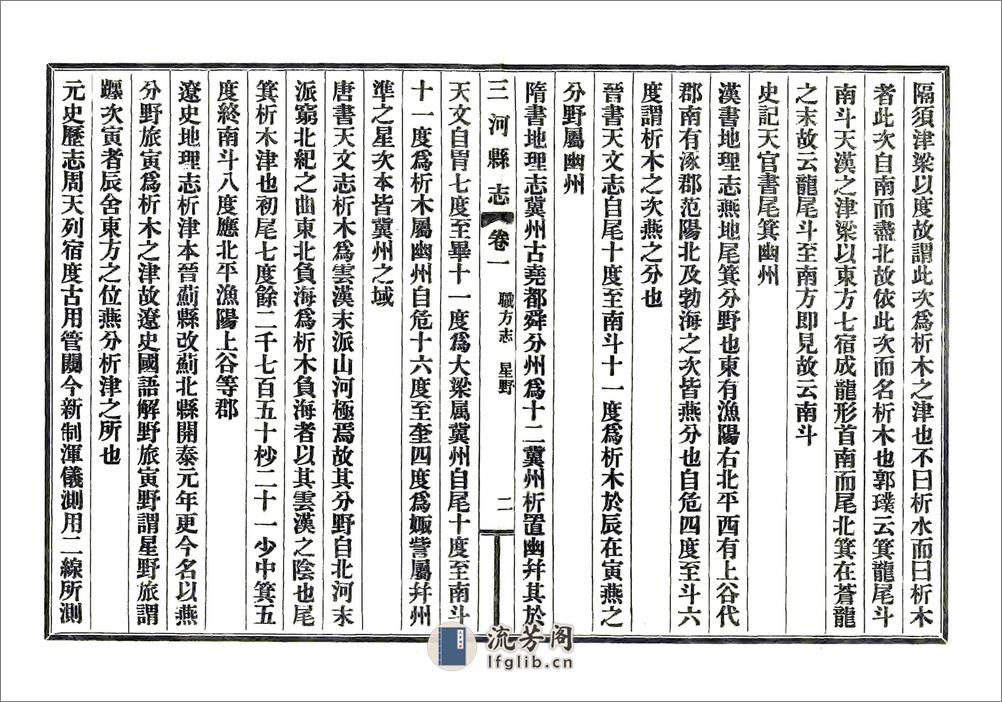 隔須津梁以度故謂此次爲析木之津也不曰析水而曰析木
者此次自南而盡北故依此次而名析木也郭璞云箕龍尾斗
南斗天漢之津梁以東方七宿成龍形首南而尾北箕在蒼龍
之末故云龍尾斗至南方即見故云南斗
史記天官書尾箕幽州
漢書地理志燕地尾箕分野也東有漁陽右北平西有上谷代
郡南有涿郡范陽北及勃海之次皆燕分也自危四度至斗六
度謂析木之次燕之分也
晉書天文志自尾十度至南斗十一度爲析木於辰在寅燕之
分野屬幽州
隋書地理志冀州古堯都舜分州爲十二冀州析置幽幷其於
三河縣志 卷一 職方志 星野 二
天文自胃七度至畢十一度爲大梁属冀州自尾十度至南斗
十一度爲析木屬幽州自危十六度至奎四度爲娵訾屬幷州
準之星次本皆冀州之域
唐書天文志析木爲雲漢末派山河極焉故其分野自北河末
派窮北紀之曲東北負海爲析木負海者以其雲漢之陰也尾
箕析木津也初尾七度餘二千七百五十杪二十一少中箕五
度終南斗八度應北平漁陽上谷等郡
遼史地理志析津本晉薊縣改薊北縣開泰元年更今名以燕
分野旅寅爲析木之津故遼史國語解野旅寅野謂星野旅謂
躔次寅者辰舍東方之位燕分析津之所也
元史歷志周天列宿度古用管闚今新制渾儀測用二線所測
流芳阁
lfglib.cn